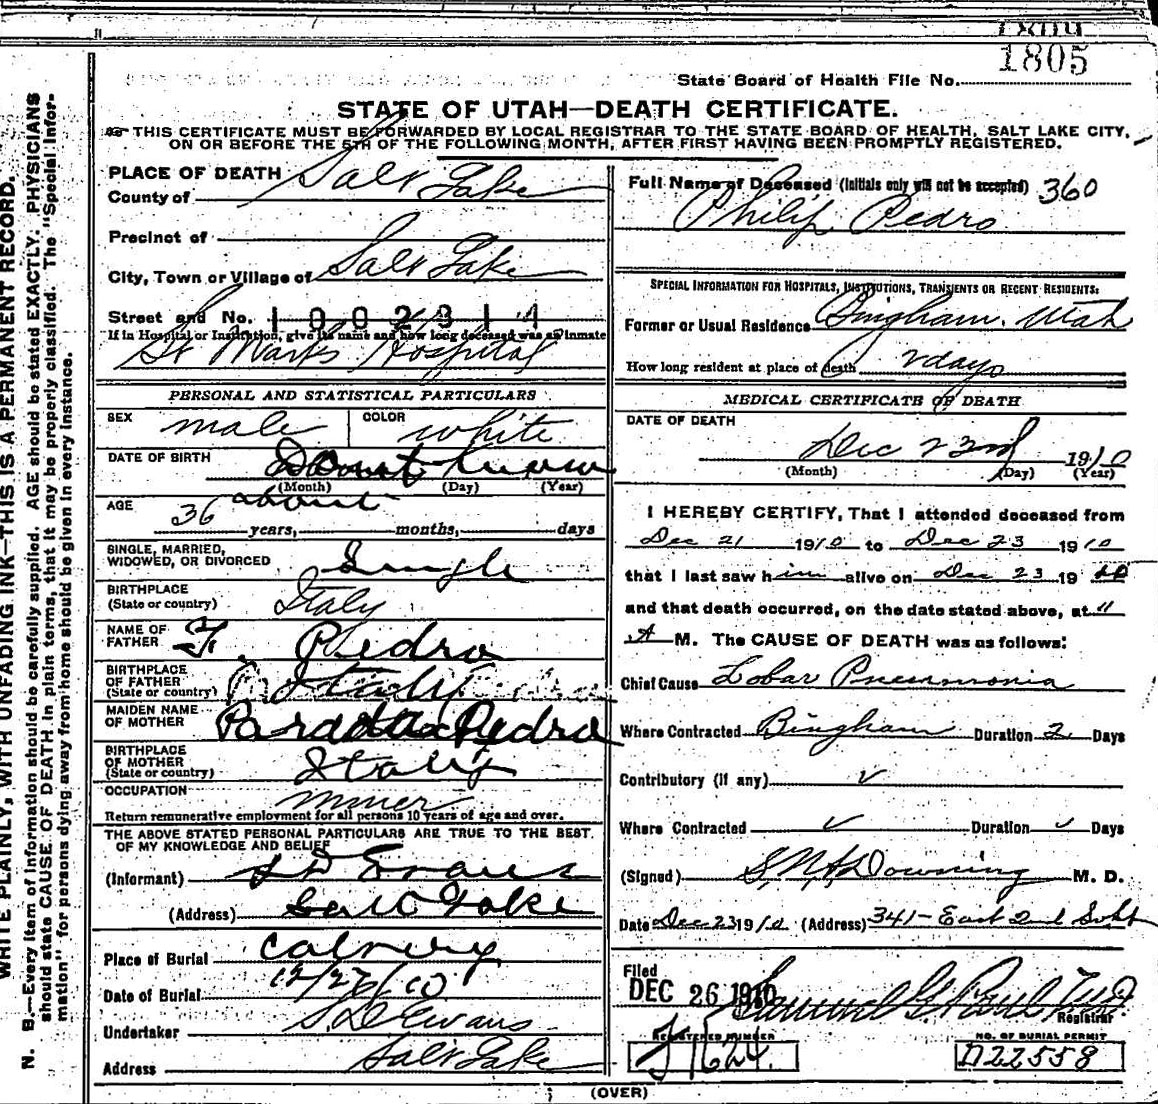 1805
State Board of Health File No.
STATE OF UTAH—DEATH CERTIFICATE.
THIS CERTIFICATE MUST BE FORWARDED BY LOCAL REGISTRAR TO THE STATE BOARD OF HEALTH, SALT LAKE CITY,
ON OR BEFORE THE 5TH OF THE FOLLOWING MONTH, AFTER FIRST HAVING BEEN PROMPTLY REGISTERED.
WRITE PLAINLY, WITH UNFADING INK—THIS IS A PERMANENT RECORD.
N. B.—Every item of information should be carefully supplied. AGE should be stated EXACTLY. PHYSICIANS
should state CAUSE OF DEATH in plain terms, that it may be properly classified. The "Special Infor-
mation" for persons dying away from home should be given in every instance.
PLACE OF DEATH
County of Salt Lake
Precinct of
City, Town or Village of Salt Lake
Street and No. 1002314
If in Hospital or Institution, give its name and how long deceased was an inmate
St Marks Hospital
PERSONAL AND STATISTICAL PARTICULARS
SEX male COLOR white
DATE OF BIRTH Dont know
(Month) (Day) (Year)
AGE about
36 years, months, days
SINGLE, MARRIED,
WIDOWED, OR DIVORCED Single
BIRTHPLACE
(State or country) Italy
NAME OF
FATHER F. Pedro
BIRTHPLACE
OF FATHER
(State or country) Italy
MAIDEN NAME
OF MOTHER Pedro
BIRTHPLACE
OF MOTHER
(State or country) Italy
OCCUPATION miner
Return remunerative employment for all persons 10 years of age and over.
THE ABOVE STATED PERSONAL PARTICULARS ARE TRUE TO THE BEST
OF MY KNOWLEDGE AND BELIEF
(Informant) S D Evans
(Address) Salt Lake
Place of Burial Calvery
Date of Burial
Undertaker S. D Evans
Address Salt Lake
Full Name of Deceased (Initials only will not be accepted) 360
Philip Pedro
SPECIAL INFORMATION FOR HOSPITALS, INSTITUTIONS, TRANSIENTS OR RECENT RESIDENTS:
Former or Usual Residence Bingham. Utah
How long resident at place of death 2 days
MEDICAL CERTIFICATE OF DEATH
DATE OF DEATH
Dec 23rd 1910
(Month) (Day) (Year)
I HEREBY CERTIFY, That I attended deceased from
Dec 21 1910 to Dec 23 1910
that I last saw him alive on Dec 23 1910
and that death occurred, on the date stated above, at 11
A M. The CAUSE OF DEATH was as follows:
Chief Cause Lobar Pneumonia
Where Contracted Bingham Duration 2 Days
Contributory (if any) ✓
Where Contracted ✓ Duration ✓ Days
(Signed) Downing M. D.
Date Dec 23 1910 (Address) 341- East 2nd South
Filed
DEC 26 1910 Samuel G Paul
Registrar
REGISTERED NUMBER
J 1624.
NO. OF BURIAL PERMIT
D22558
(OVER)